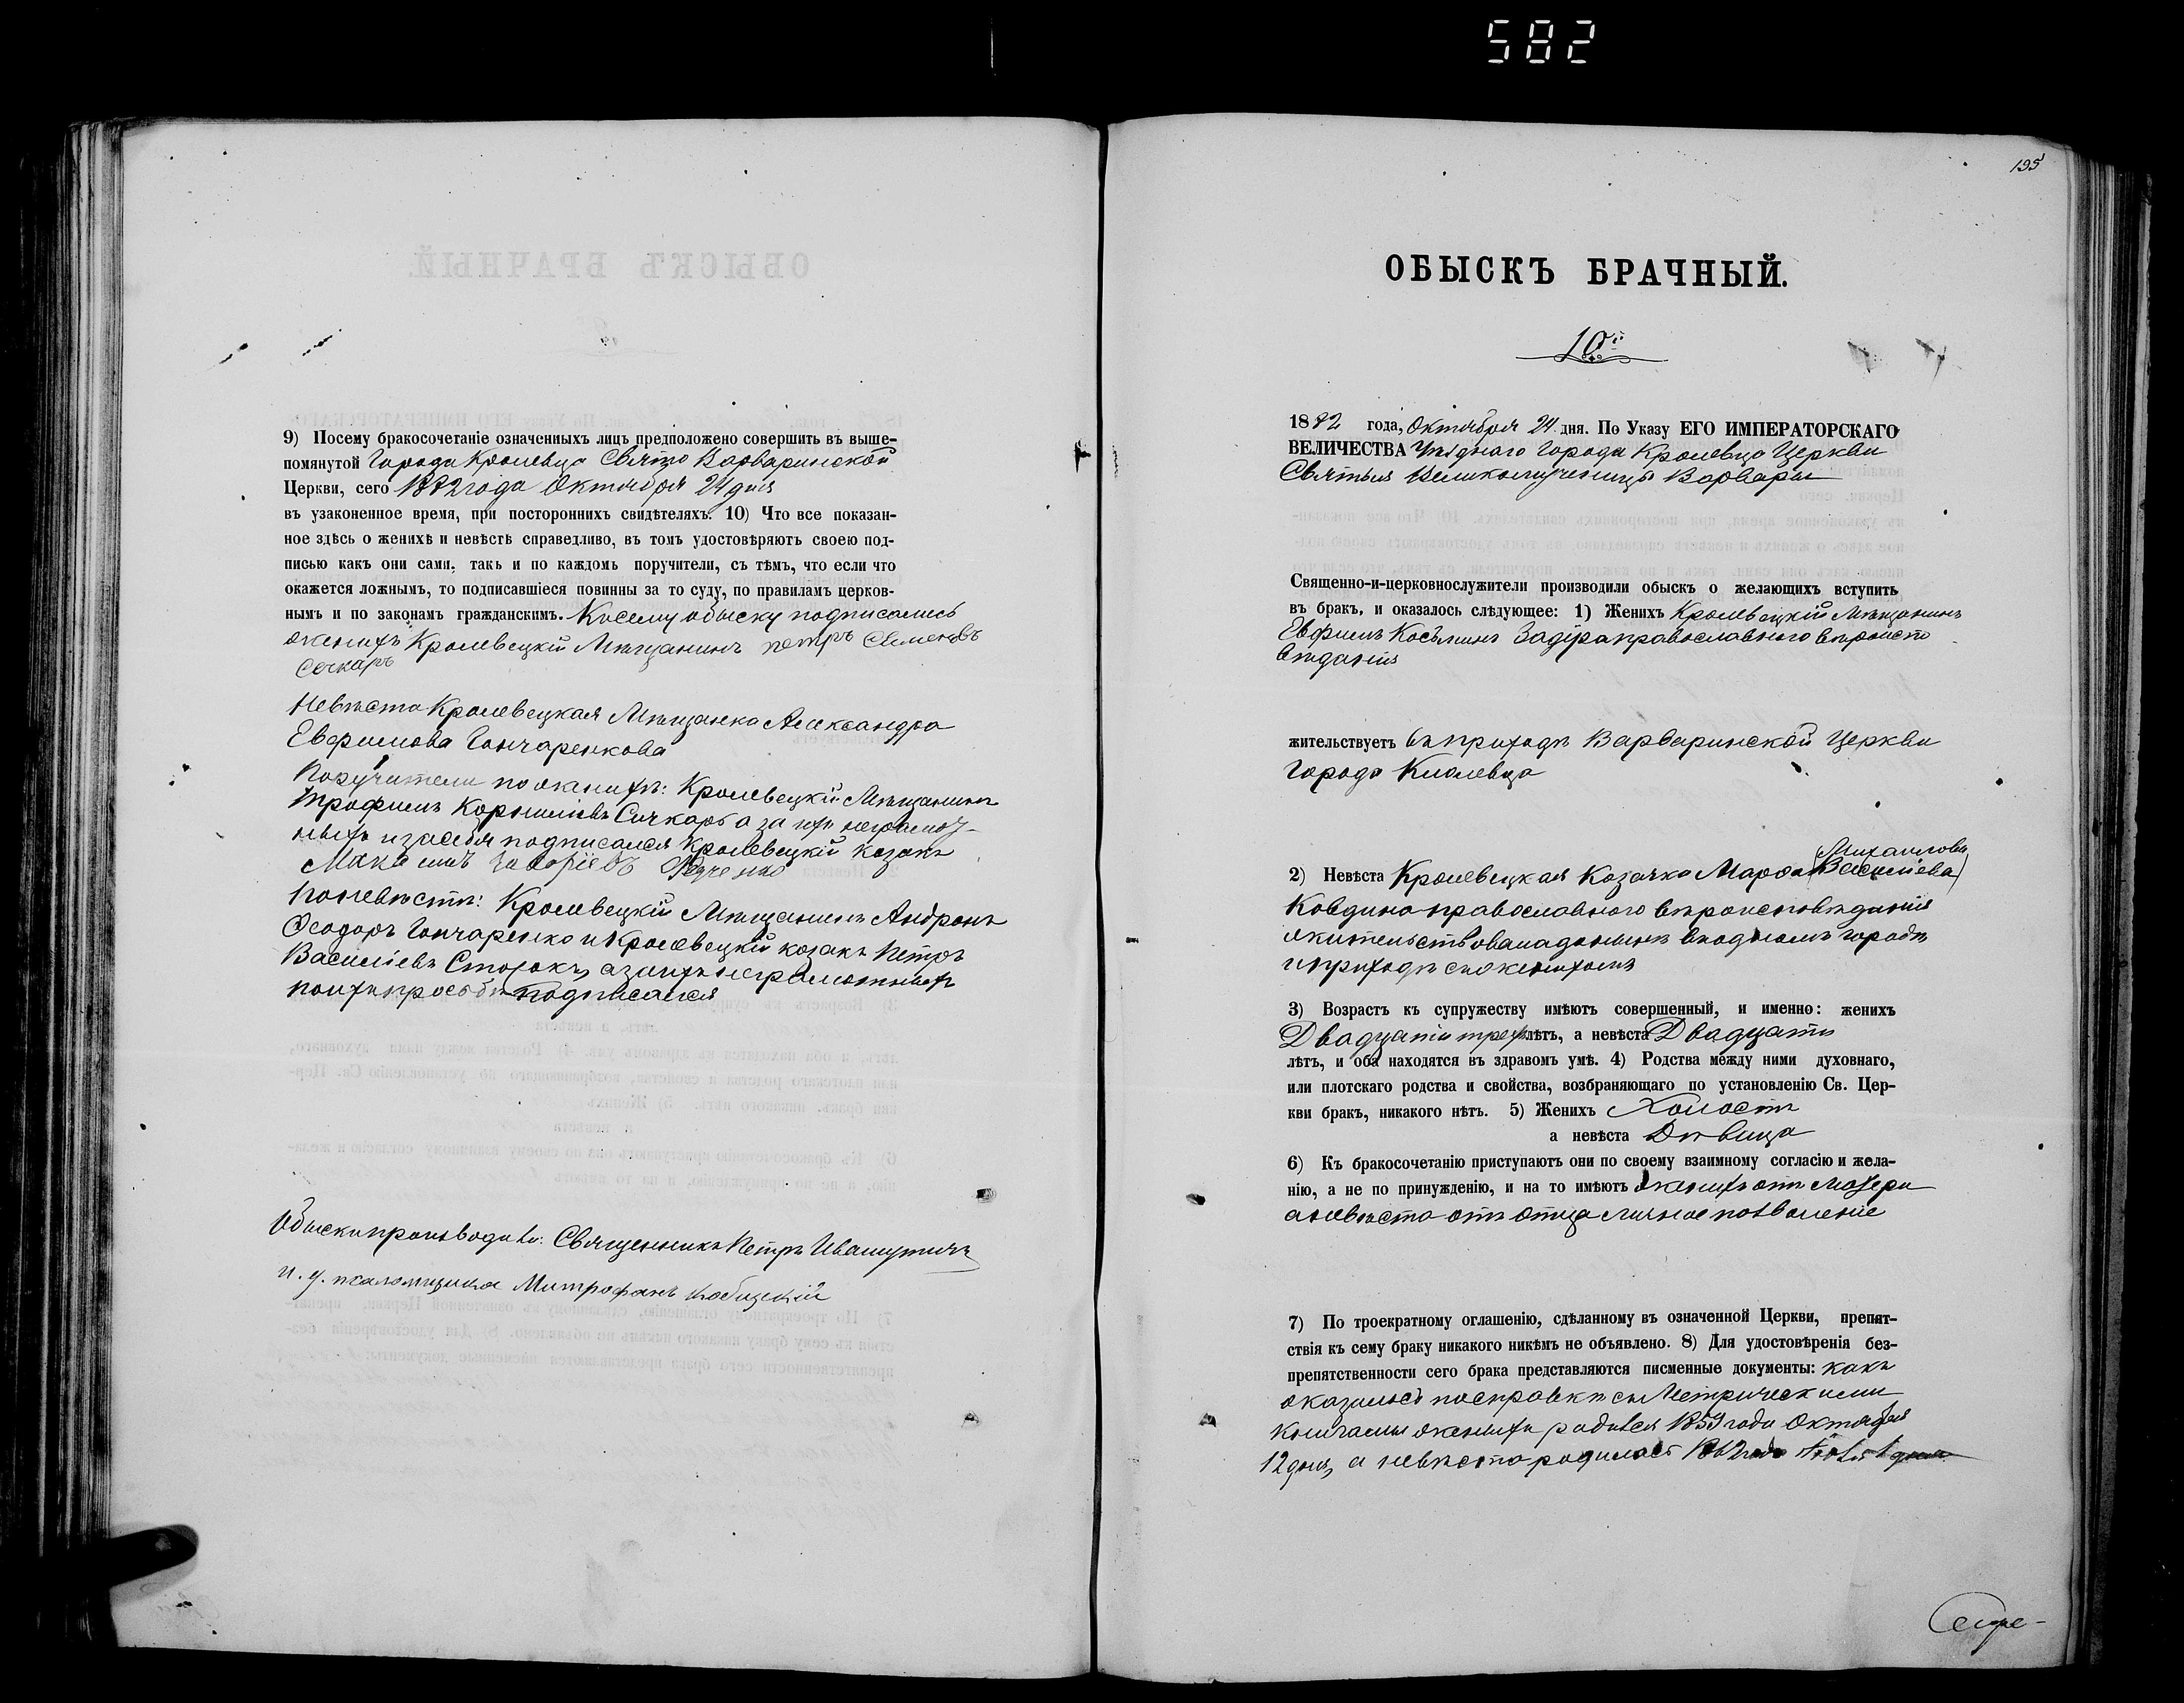 582
9) Посему бракосочетаніе означенныхъ лицъ предположено совершить въ выше-
помянутой Города Кролевца Свято Варваринской
Церкви, сего 1882 года Октября 24 дня
въ узаконенное время, при постороннихъ свидѣтеляхъ. 10) Что все показан-
ное здѣсь о женихѣ и невѣстѣ справедливо, въ томъ удостовѣряютъ своею под-
писью какъ они сами, такъ и по каждомъ поручители, съ тѣмъ, что если что
окажется ложнымъ, то подписавшіеся повинны за то суду, по правиламъ церков-
нымъ и по законамъ гражданскимъ. Къ сему обыску подписались
женихъ Кролевецкій Мѣщанинъ петръ Семеновъ
Сечкаръ
Невѣста Кролевецкая Мѣщанка Александра
Евфимова Гончаренкова
Поручители по женихѣ: Кролевецкій Мѣщанинъ
Трофимъ Корниліевъ Сичкарь а за нихъ неграмот-
ныхъ и за себя подписался Кролевецкій казакъ
По невѣстѣ: Кролевецкій Мѣщанинъ Андронъ
Ѳеодоръ Гончаренко и Кролевецкій козакъ Петръ
Василіевъ а за ихъ неграмотныхъ
по ихъ просьбѣ подписался
Обыскъ производили: Священникъ Петръ Ивашутичъ
и. д. псаломщика Митрофанъ
195
ОБЫСКЪ БРАЧНЫЙ.
10й
1882 года, Октября 24 дня. По Указу ЕГО ИМПЕРАТОРСКАГО
ВЕЛИЧЕСТВА Уѣзднаго Города Кролевца Церкви
Святыя Великомученицы Варвары
Священно-и-церковнослужители производили обыскъ о желающихъ вступить
въ бракъ, и оказалось слѣдующее: 1) Женихъ Кролевецкій Мѣщанинъ
Евфимъ Косьминъ Задира православнаго вѣроиспо
вѣданія
жительствуетъ въ приходѣ Варваринской Церкви
Города Кролевца
Михаилова
2) Невѣста Кролевецкая Козачка Марѳа (Василіева)
Ковдина православнаго вѣроисповѣданія
жительствовала донынѣ въ одномъ городѣ
и приходѣ съ женихомъ
3) Возрастъ къ супружеству имѣютъ совершенный, и именно: женихъ
Двадцати трехъ лѣтъ, а невѣста Двадцати
лѣтъ, и оба находятся въ здравомъ умѣ. 4) Родства между ними духовнаго,
или плотскаго родства и свойства, возбраняющаго по установленію Св. Цер-
кви бракъ, никакого нѣтъ. 5) Женихъ Холостъ
а невѣста Дѣвица
6) Къ бракосочетанію приступаютъ они по своему взаимному согласію и жела-
нію, а не по принужденію, и на то имѣютъ женихъ отъ матери
а невѣста отъ отца личное позволеніе
7) По троекратному оглашенію, сдѣланному въ означенной Церкви, препят-
ствія къ сему браку никакого никѣмъ не объявлено. 8) Для удостовѣренія без-
препятственности сего брака представляются писменные документы: какъ
оказалось по справкѣ съ Метрическими
книгами женихъ родился 1859 года Октября
12 дня, а невѣста родилась 1862 года